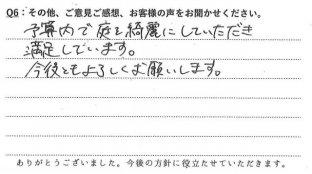 Q6：その他、ご意見ご感想、お客様の声をお聞かせください。
予算内で庭を綺麗にしていただき
満足しています。
今後ともよろしくお願いします。
ありがとうございました。今後の方針に役立たせていただきます。